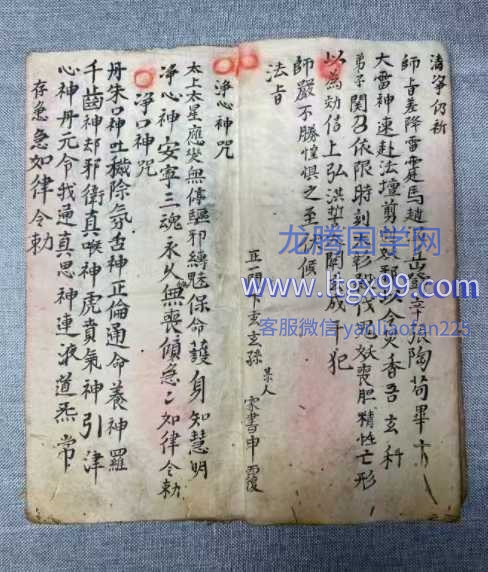 清净仍祈
師旨差降雷霆馬趙
陶荀畢
大雷神速赴法壇剪
香吾玄科
弟子関召依限時刻
妖喪胆精怪亡形
以為効信上弘洪
犯
師嚴不勝惶惧之至
候
法旨
正一門下玄玄孫某人
家書申覆
淨心神咒
太上太星應變無停驅邪縛魅保命護身知慧明
淨心神安寧三魂永久無喪傾急〻如律令勅
淨口神咒
丹朱口神吐穢除氛舌神正倫通命養神羅
千齒神却邪衛真喉神虎賁氣神引津
心神丹元令我通真思神連液道炁常
存急急如律令勅
龙腾国学网
www.ltgx99.com
客服微信-yanliaofan225